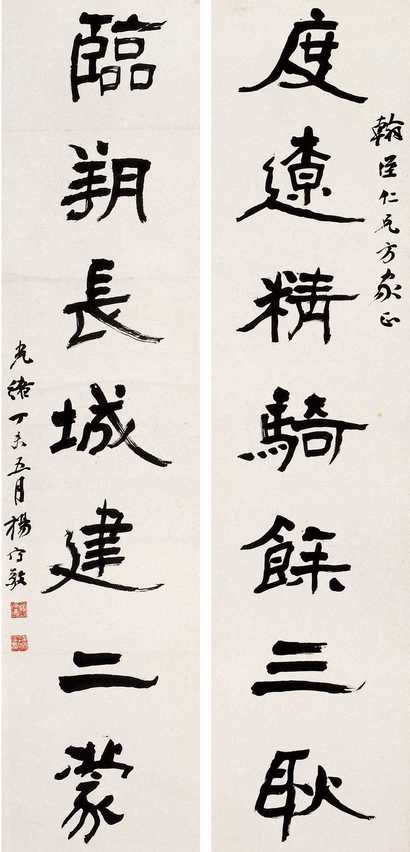 翰仁兄方家正
度遼精騎餘三耿
臨朔長城建二蒙
光緒丁未五月楊守敬